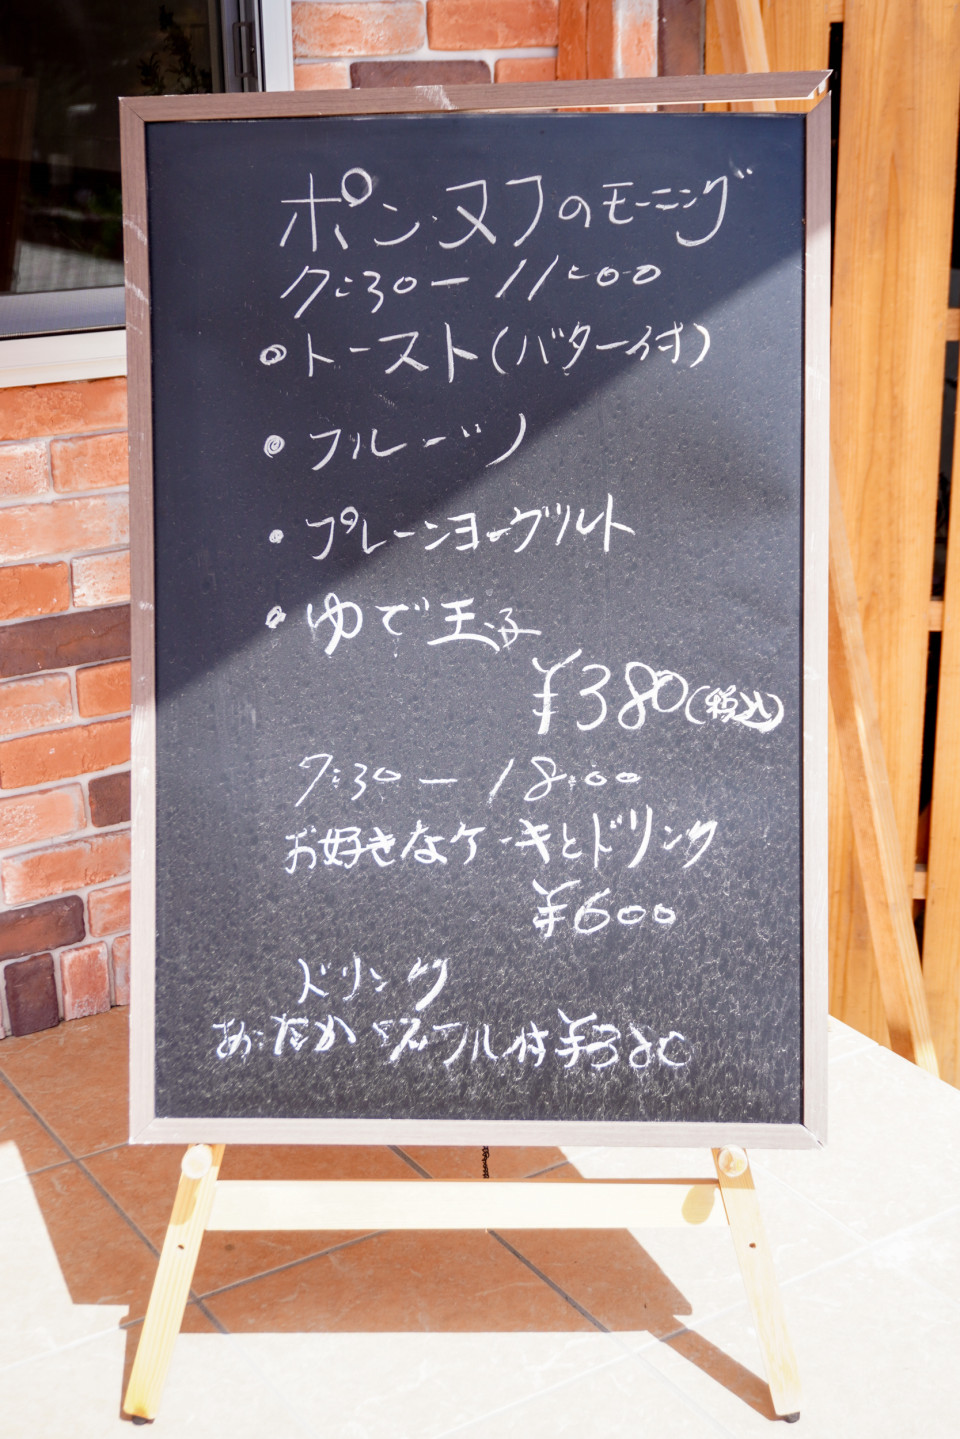 ポンヌフのモーニング
7:30ー11:00
◎トースト(バター付)
◎フルーツ
・プレーンヨーグルト
・ゆで玉子
¥380(税込)
7:30ー18:00
お好きなケーキとドリンク
¥600
ドリンク
ワッフル付¥380